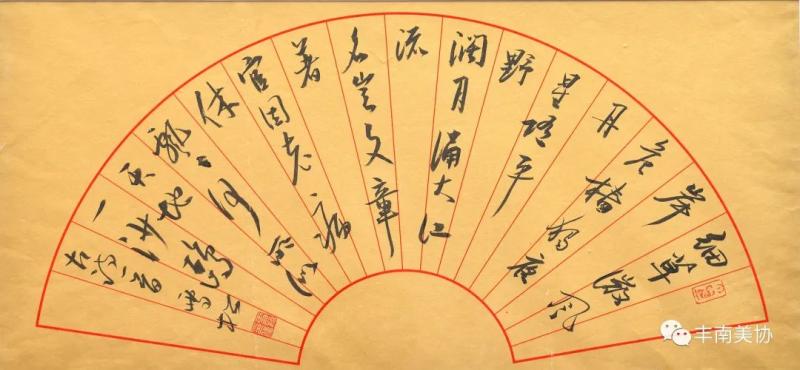 细草微风
岸
危樯独夜
舟
星垂平
野
阔月涌大江
流
名岂文章
著
官因老病
休
飘飘何所似
天地
一沙鸥
丰南美协